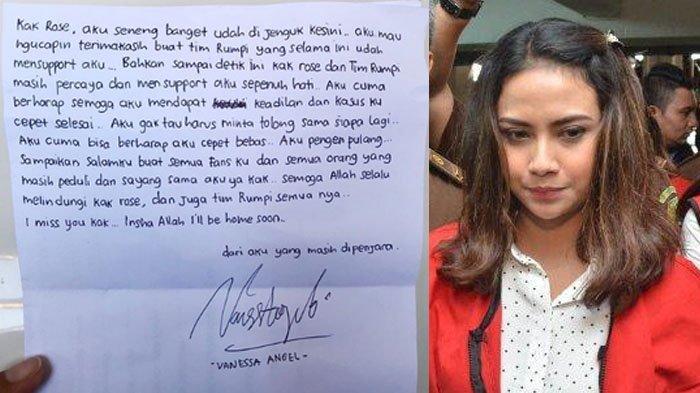 Kak Rose, aku seneng banget udah di jenguk kesini.. aku mau
ngucapin termakasih buat tim Rumpi yang selama ini udah
mensupport aku... Bahkan sampai detik ini kak rose dan Tim Rumpi
masih percaya dan men support aku sepenuh hati.. Aku cuma
berharap semoga aku mendapat keadilan dan kasus ku
cepet selesai.. Aku gak tau harus minta tolong sama siapa lagi..
Aku cuma bisa berharap aku cepet bebas.. Aku pengen pulang..
Sampaikan salamku buat semua fans ku dan semua orang yang
masih peduli dan sayang sama aku ya kak.. semoga Allah selalu
melindungi kak rose, dan juga tim Rumpi semua nya..
I miss you kak.. Insha Allah I'll be home soon..
dari aku yang masih dipenjara.
-VANESSA ANGEL-